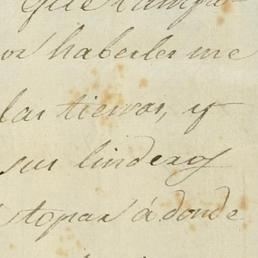 que
or haberles me
las tierras, y
sus linderos
topar á donde